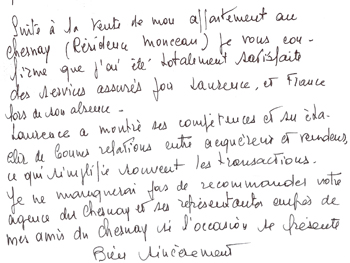 Suite à la vente de mon appartement au
Chesnay (Résidence Monceau) je vous con-
firme que j'ai été totalement satisfaite
des services assurés par Laurence, et France
lors de son absence.
Laurence a montré ses compétences et su éta-
blir de bonnes relations entre acquéreur et vendeur,
ce qui simplifie souvent les transactions.
Je ne manquerai pas de recommander votre
agence du Chesnay et ses représentantes auprès de
mes amis du Chesnay si l'occasion se présente
Bien sincèrement